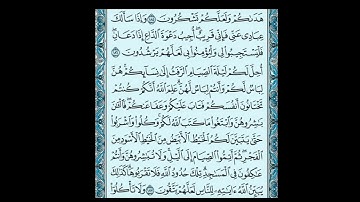 هَدَىٰكُمْ وَلَعَلَّكُمْ تَشْكُرُونَ ١٨٥ وَإِذَا سَأَلَكَ
عِبَادِى عَنِّى فَإِنِّى قَرِيبٌ أُجِيبُ دَعْوَةَ ٱلدَّاعِ إِذَا دَعَانِ
فَلْيَسْتَجِيبُوا۟ لِى وَلْيُؤْمِنُوا۟ بِى لَعَلَّهُمْ يَرْشُدُونَ ١٨٦
أُحِلَّ لَكُمْ لَيْلَةَ ٱلصِّيَامِ ٱلرَّفَثُ إِلَىٰ نِسَآئِكُمْ هُنَّ
لِبَاسٌ لَّكُمْ وَأَنتُمْ لِبَاسٌ لَّهُنَّ عَلِمَ ٱللَّهُ أَنَّكُمْ كُنتُمْ
تَخْتَانُونَ أَنفُسَكُمْ فَتَابَ عَلَيْكُمْ وَعَفَا عَنكُمْ فَٱلْـَٰٔنَ
بَـٰشِرُوهُنَّ وَٱبْتَغُوا۟ مَا كَتَبَ ٱللَّهُ لَكُمْ وَكُلُوا۟ وَٱشْرَبُوا۟
حَتَّىٰ يَتَبَيَّنَ لَكُمُ ٱلْخَيْطُ ٱلْأَبْيَضُ مِنَ ٱلْخَيْطِ ٱلْأَسْوَدِ مِنَ
ٱلْفَجْرِ ثُمَّ أَتِمُّوا۟ ٱلصِّيَامَ إِلَى ٱلَّيْلِ وَلَا تُبَـٰشِرُوهُنَّ وَأَنتُمْ
عَـٰكِفُونَ فِى ٱلْمَسَـٰجِدِ تِلْكَ حُدُودُ ٱللَّهِ فَلَا تَقْرَبُوهَا كَذَٰلِكَ
يُبَيِّنُ ٱللَّهُ ءَايَـٰتِهِۦ لِلنَّاسِ لَعَلَّهُمْ يَتَّقُونَ ١٨٧ وَلَا تَأْكُلُوٓا۟